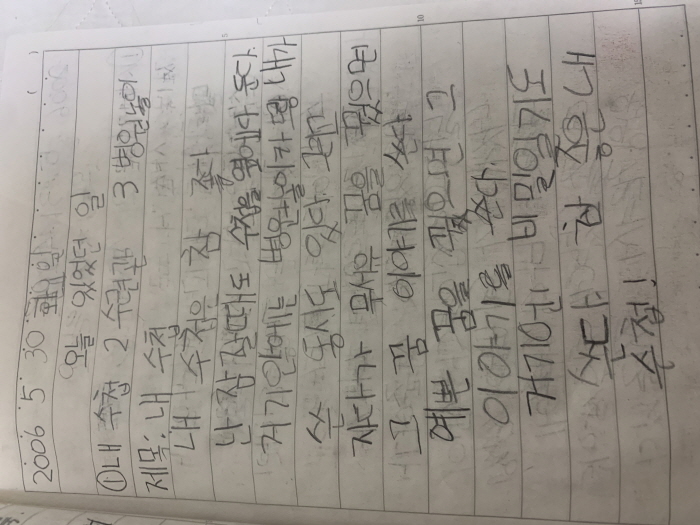 2006 5 30 화요일
오늘 있었던 일
①내 수첩 2 수련관 3 병원놀이
제목: 내 수첩
내 수첩은 참 좋다
난 잠잘때도 수첩을 옆에다 둔다.
거기안에는 병원놀이가랑 내가
쓴 동시도 있다 그리고
자다가 무서운 꿈을 꿨으면
그 꿈 이야기를 쓴다
예쁜 꿈을 꿨으면 그
이야기를 쓴다.
거기엔 비밀일기도
쓴다 참 좋은 내
수첩!